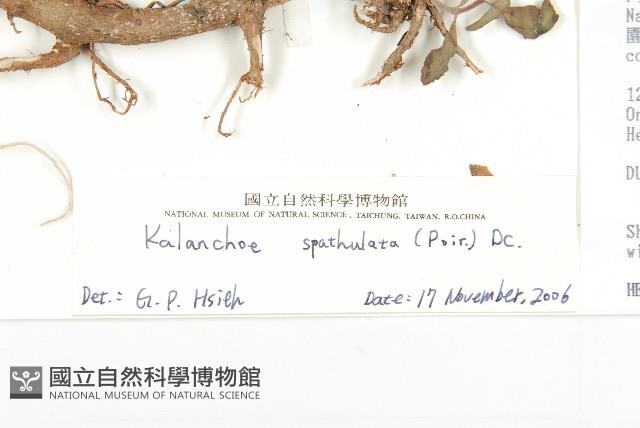 國立自然科學博物館
NATIONAL MUSEUM OF NATURAL SCIENCE, TAICHUNG, TAIWAN, R.O.CHINA
Kalanchoe spathulata (Poir.) DC.
Det.: G. P. Hsieh
Date: 17 November, 2006
Na
園
co
12
Or
He
DU
Sh
wi
HE
國立自然科學博物館
NATIONAL MUSEUM OF NATURAL SCIENCE